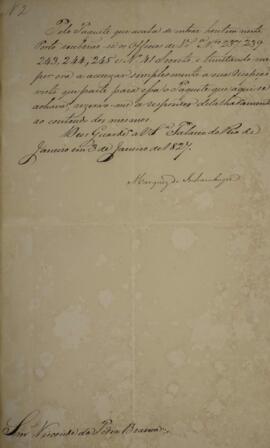 N 2
Pelo Paquete que acaba de entrar hontem neste
Porto receberão-se os Officios de V. Sª Nos 237, 239
243, 244, 245 e Nº 41 Secreto e limitando-me
por ora a accuzar simplesmente a sua recepção
visto que parte para essa o Paquete que aqui se
achava, rezervo-me a responder detalhadamente
ao contendo dos mesmos.
Deos Guarde a V. Sª Palacio do Rio de
Janeiro em 3 de Janeiro de 1827.
Marquez de Inhambupe
Snr. Visconde da Pedra Branca